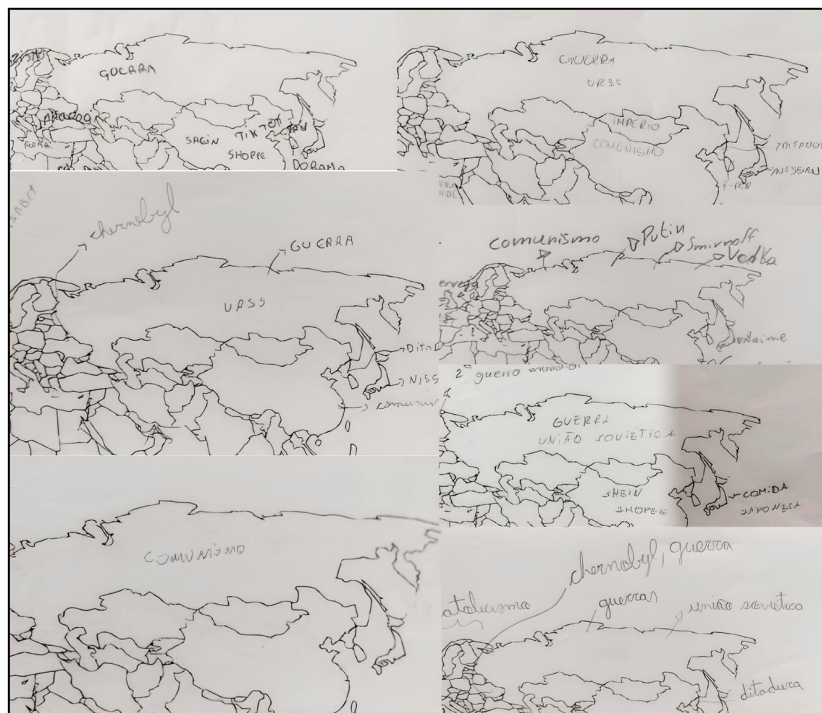 GUERRA
SHEIN
TIK TOK
SHOPPE
DORAMA
GUERRA
URSS
IMPÉRIO
COMUNISMO
chernobyl
GUERRA
URSS
Dita
NISS
comunis
comunismo
Putin
Smirnoff
Vodka
anime
2ª guerra
GUERRA
UNIÃO SOVIÉTICA
SHEIN
SHOPEE
COMIDA
JAPONESA
COMUNISMO
chernobyl, guerra
atolicismo
guerras
união soviético
ditadura